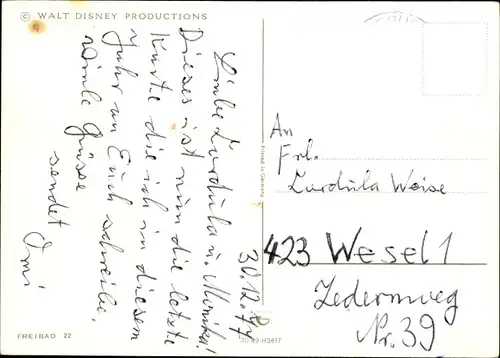 © WALT DISNEY PRODUCTIONS
30.12.77
Liebe Cordula u. Monika!
Dieses ist nun die letzte
Karte die ich in diesem
Jahr an Euch schreibe.
viele Grüsse
sendet
Omi
FREIBAD 22
Printed in Germany
30-49-H3617
An
Frl.
Cordula Weise
423 Wesel 1
Zedernweg
Nr. 39